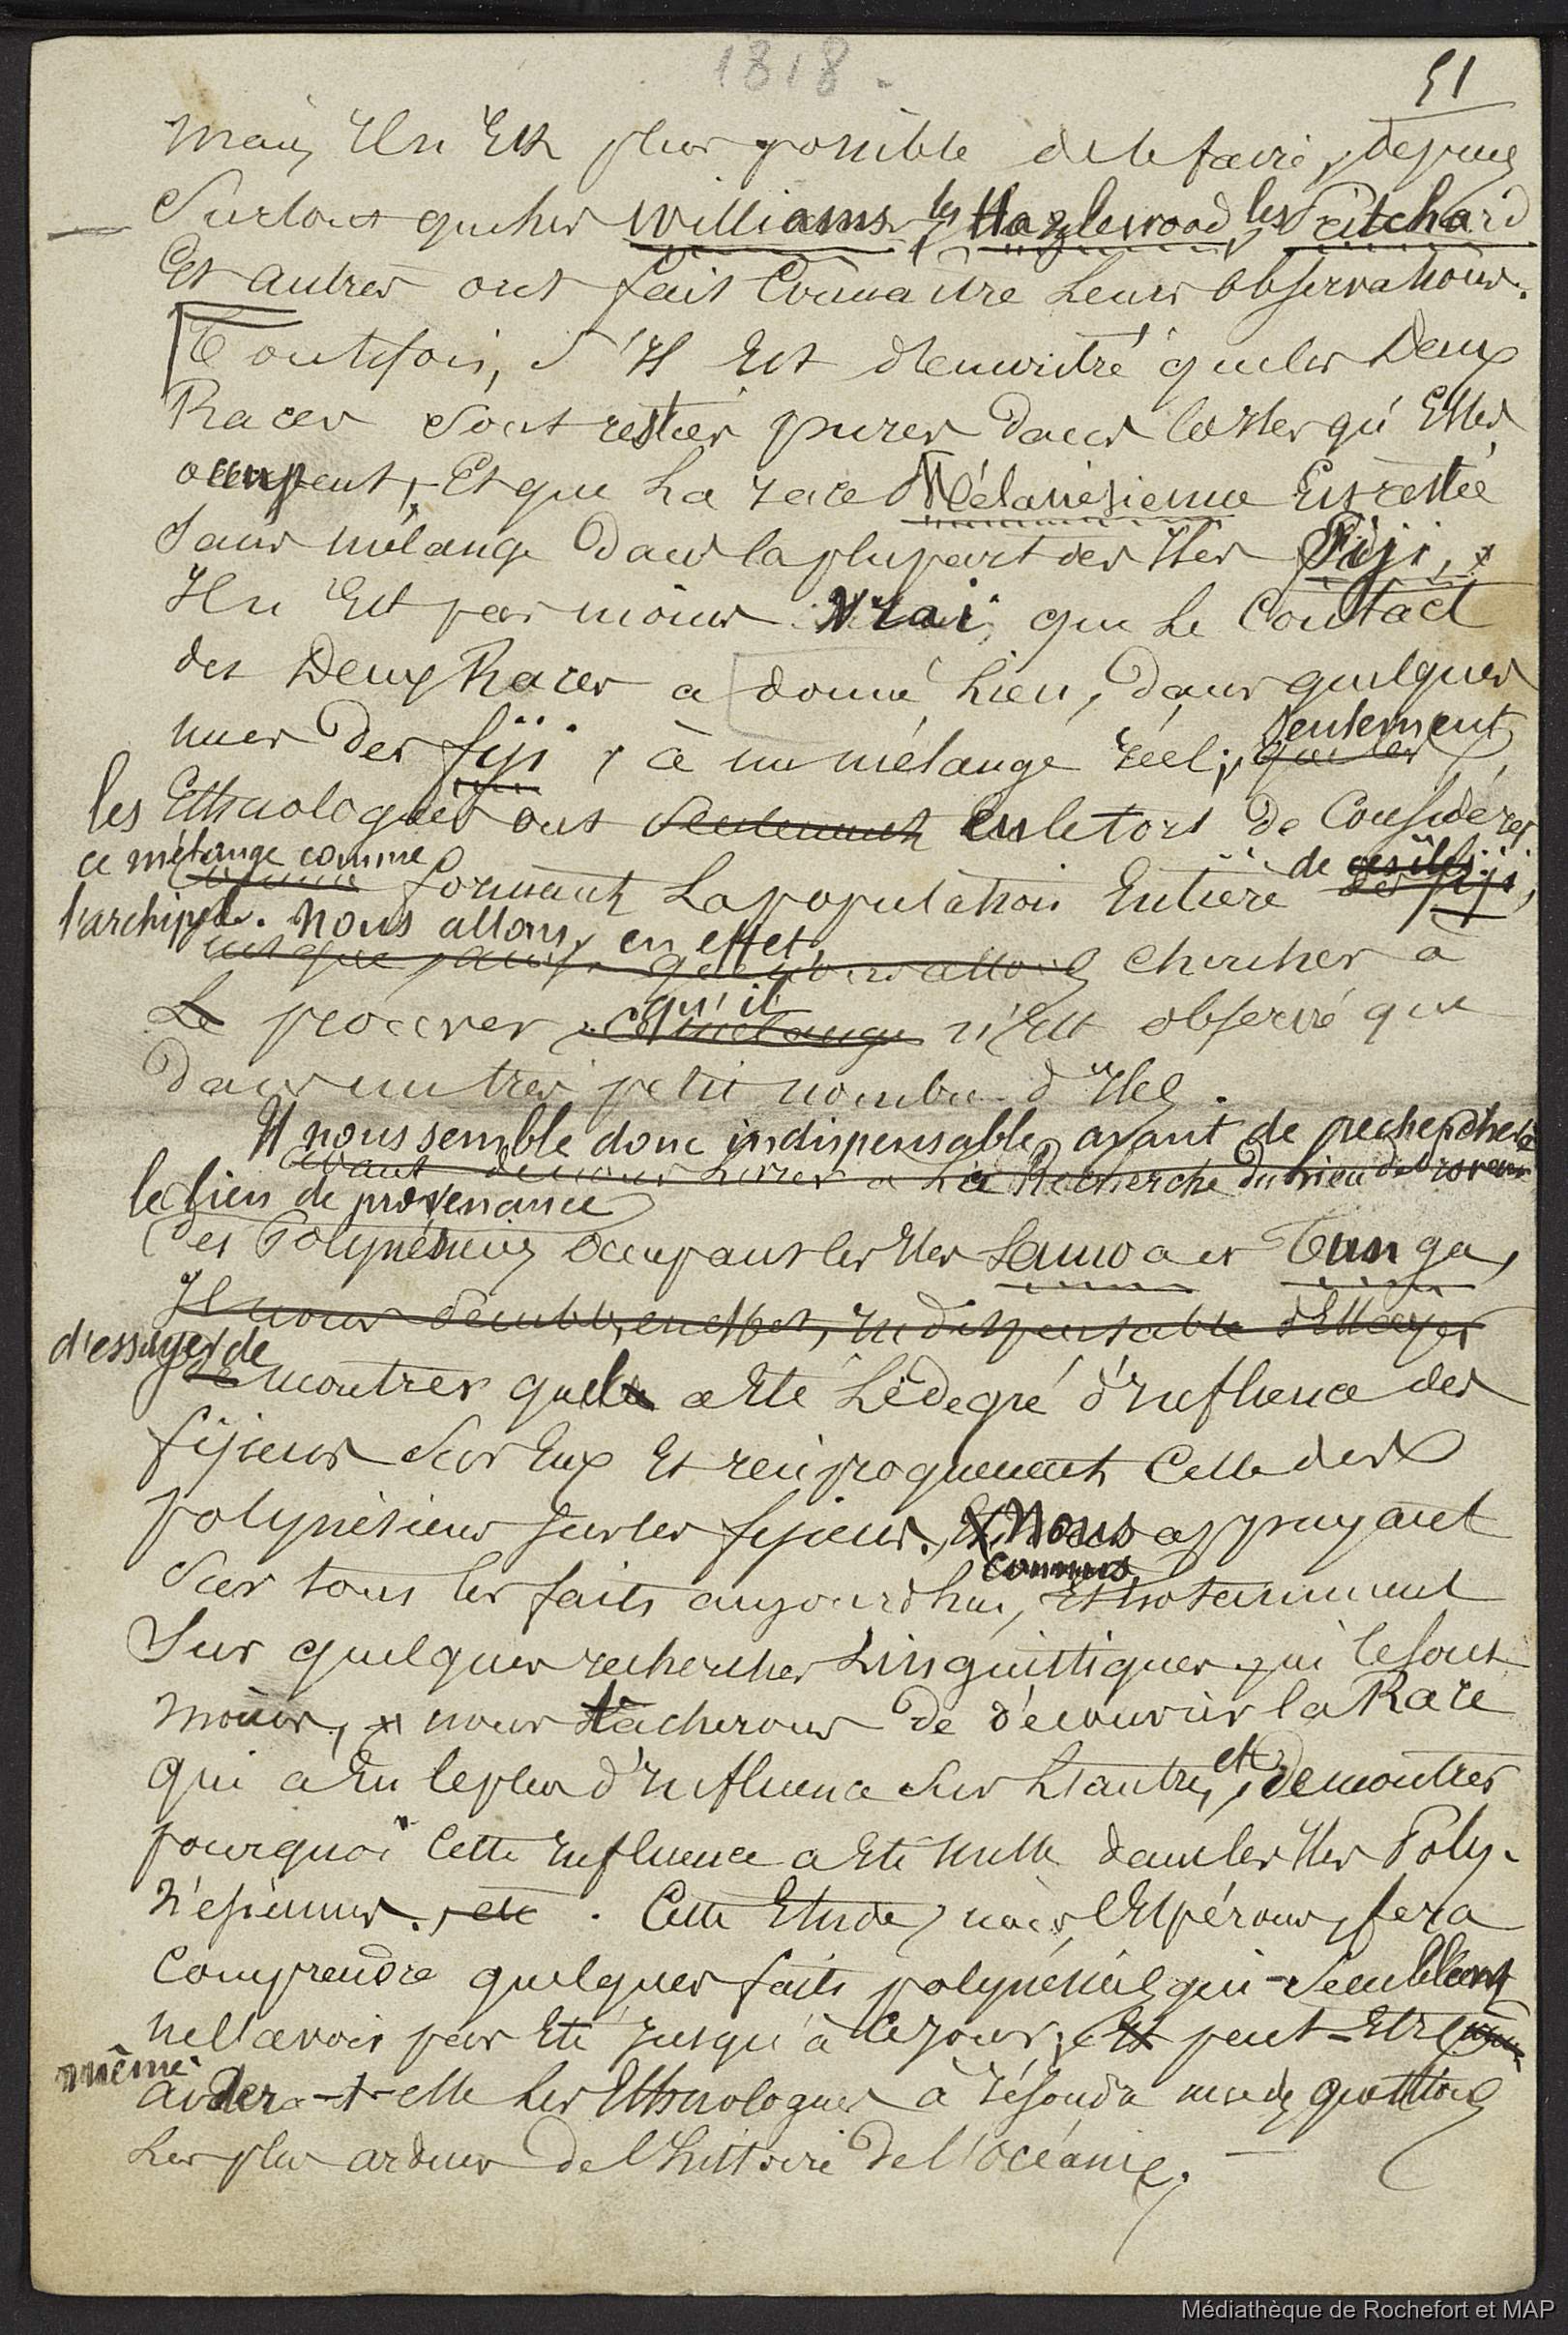 1818.
51
mais Il n'Est plus possible de le faire, depuis
Surtout que les Williams, les Hazlewood, les Pritchard
Et autres ont fait Connaître Leurs Observations.
Toutefois, S'Il Est démontré que les Deux
Races Sont restées pures dans les Iles qu'Elles
occupent, Et que La race Mélanésienne Est restée
Sans mélange Dans la plupart des Iles Fiji,
Il n'Est pas moins vrai que Le Contact
des Deux Races a donné Lieu, dans quelques
unes Des fiji, à un mélange réel; que les
seulement
les Ethnologues ont Seulement eu le tort de Considérer
ce mélange comme
Comme formant La population Entière des fiji,
de ces îles
l'archipel. Nous allons, en effet,
que nous allons Chercher à
Le prouver, Ce mélange n'Est observé que
qu'il
Dans un très petit nombre d'Iles.
Il nous semble donc indispensable, avant de rechercher
avant de nous Livrer à La Recherche du Lieu de Provenance
le lieu de provenance
Des Polynésiens Occupant les Iles Samoa et Tunga,
Il nous Semble, en effet, Indispensable d'Essayer
d'essayer de
De montrer quel a Eté Le degré d'Influence des
fijiens Sur Eux Et réciproquement Celle des
polynésiens Sur les fijiens. Et Nous appuyant
Sur tous les faits aujourd'hui, Et notamment
connus
Sur quelques recherches Linguistiques qui le sont
moins, nous tâcherons De découvrir la Race
qui a Eu le plus d'Influence Sur L'autre, et, démontrer
pourquoi Cette Influence a Eté nulle dans les Iles Poly-
nésiennes., etc. Cette Etude, nous l'Espérons, fera
Comprendre quelques faits polynésiens qui Semblent
ne l'avoir pas Eté Jusqu'à Ce Jour; Et peut-Etre
même
aidera-t-elle Les Ethnologues à résoudre une des questions
Les plus ardues De l'histoire De l'Océanie. —
Médiathèque de Rochefort et MAP